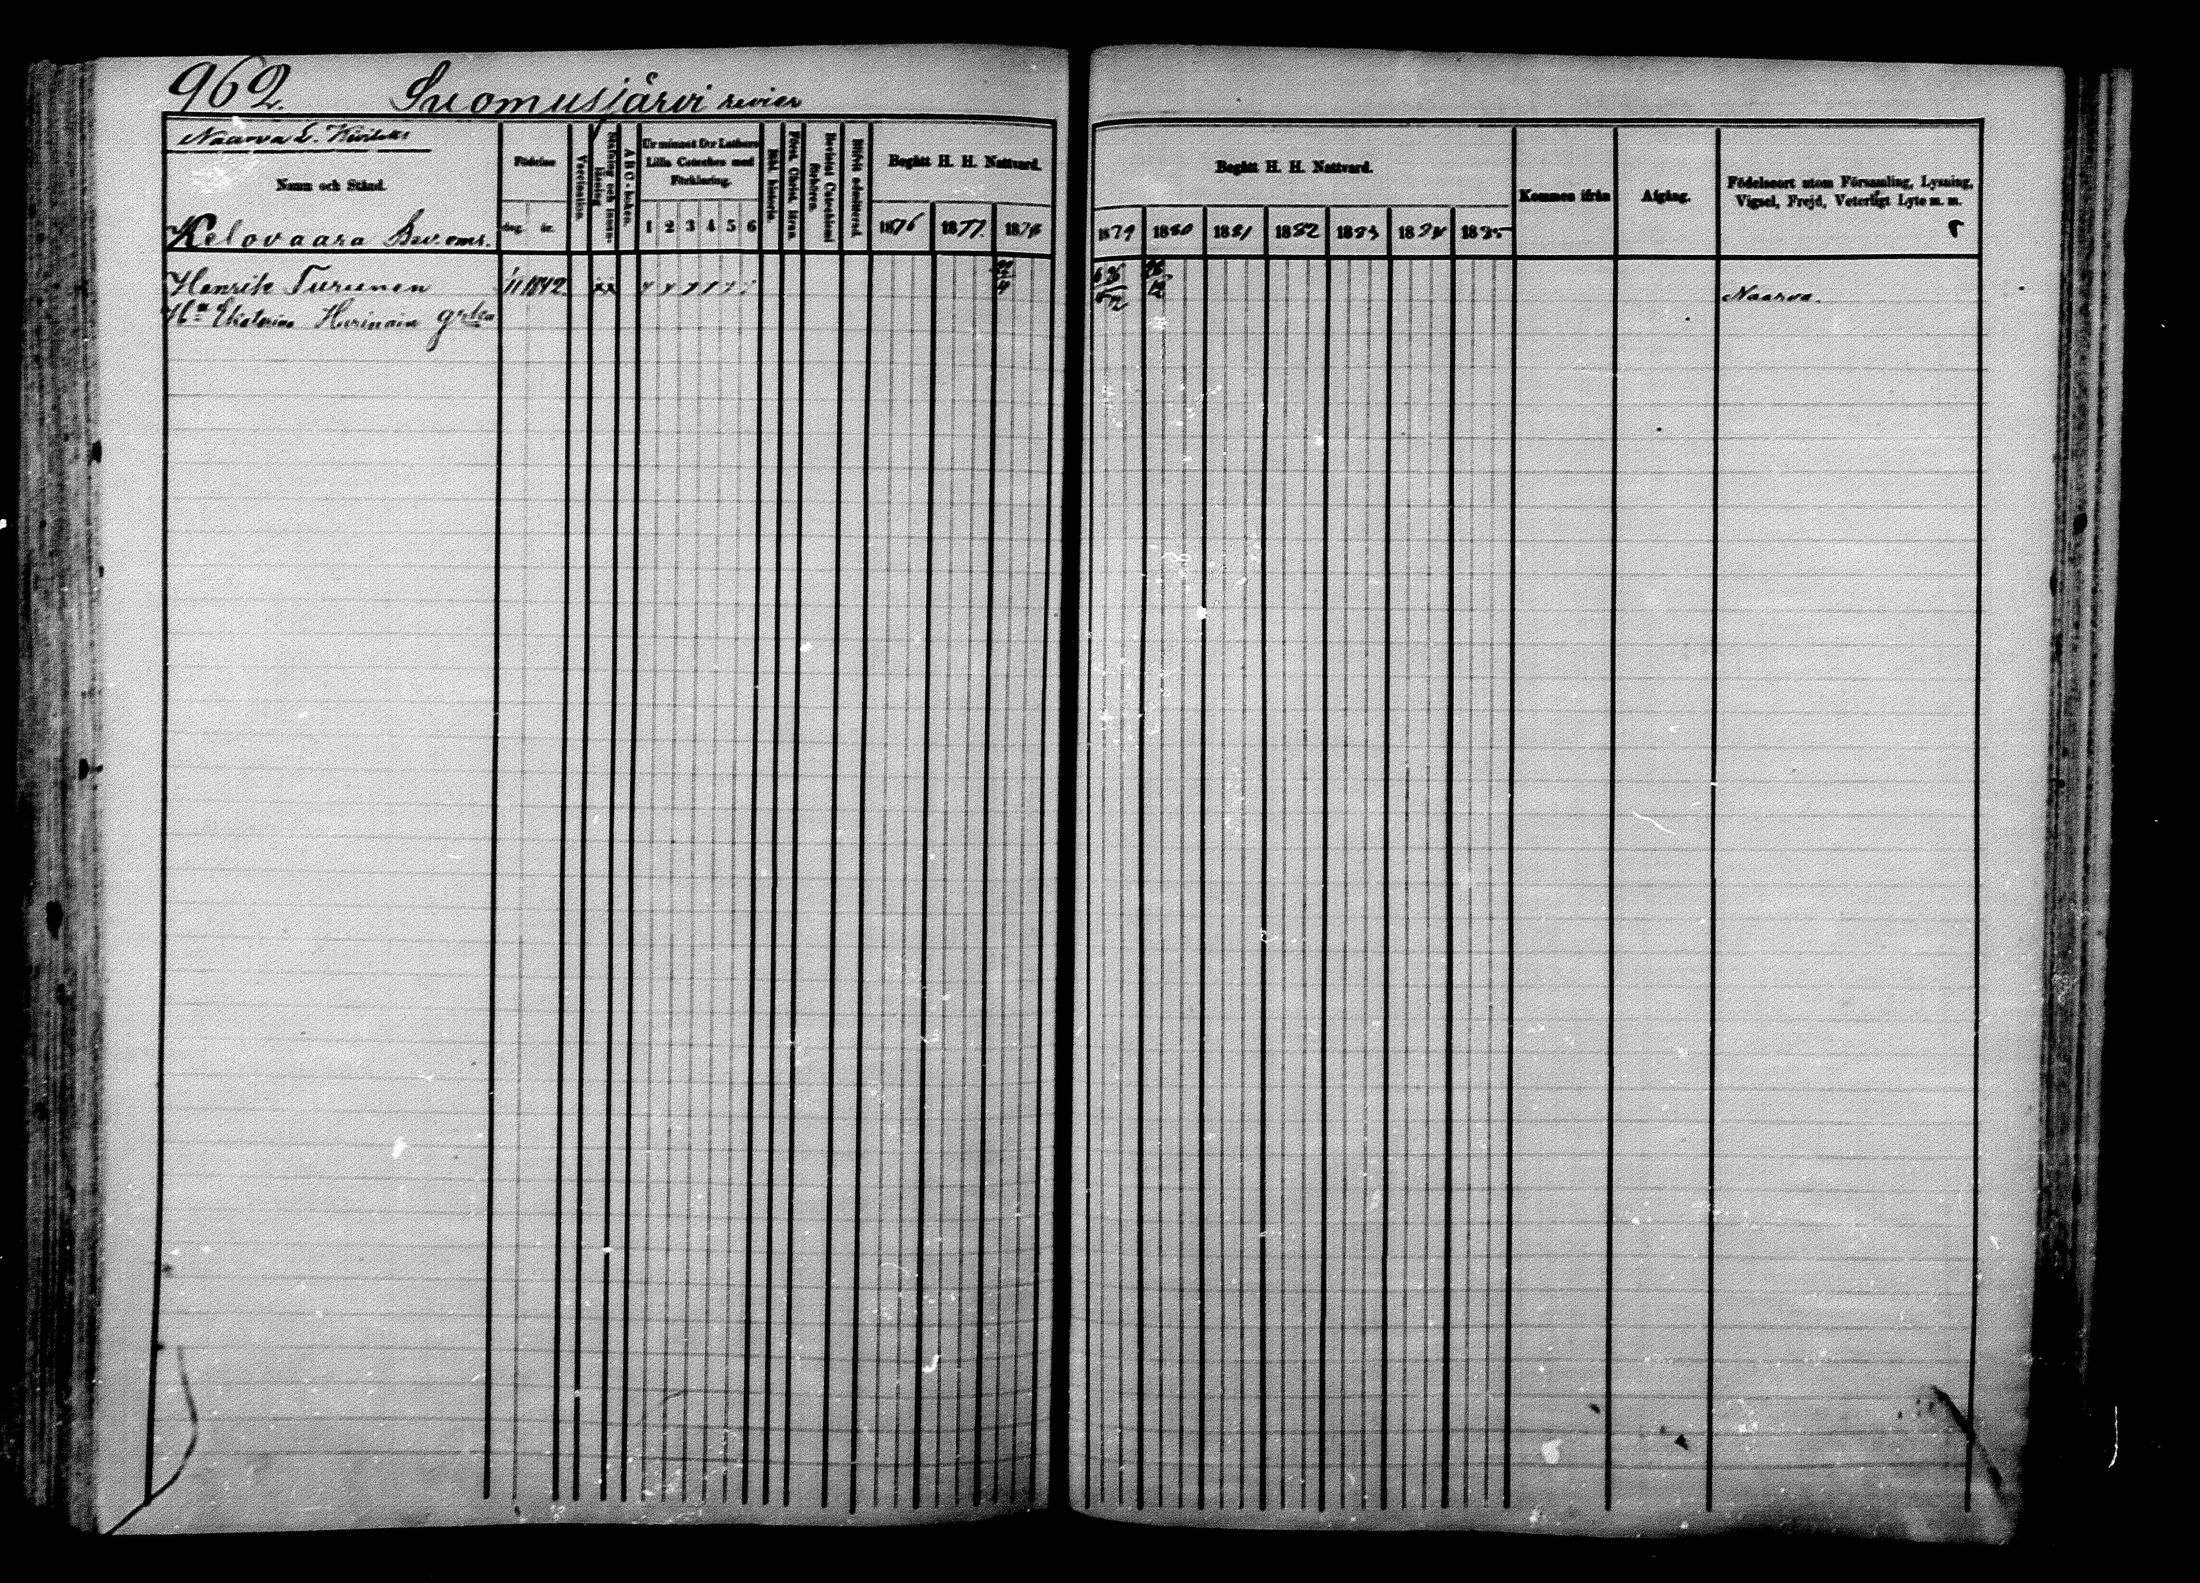 962. Suomusjärvi revier
Naarva
Namn och Stånd.
Kelovaara Bev.oms.
Födelse
dag. år.
Vaccination.
Stafning och innan-läsning.
A B C-boken.
Ur minnet D:r Luthers Lilla Cateches med Förklaring.
1 2 3 4 5 6
Bibl. historia.
Först. Christ. läran.
Bevistat Catechismi förhören.
Blifvit admitterad.
Begått H. H. Nattvard.
1876 1877. 1878
Begått H. H. Nattvard.
1879 1880 1881 1882 1883 1884 1885
Kommen ifrån
Afgång.
Födelseort utom Församling, Lysning, Vigsel, Frejd, Veterligt Lyte m. m.
Henrik Turunen 1/1 1842. Naarva.
H:u Ekaterina